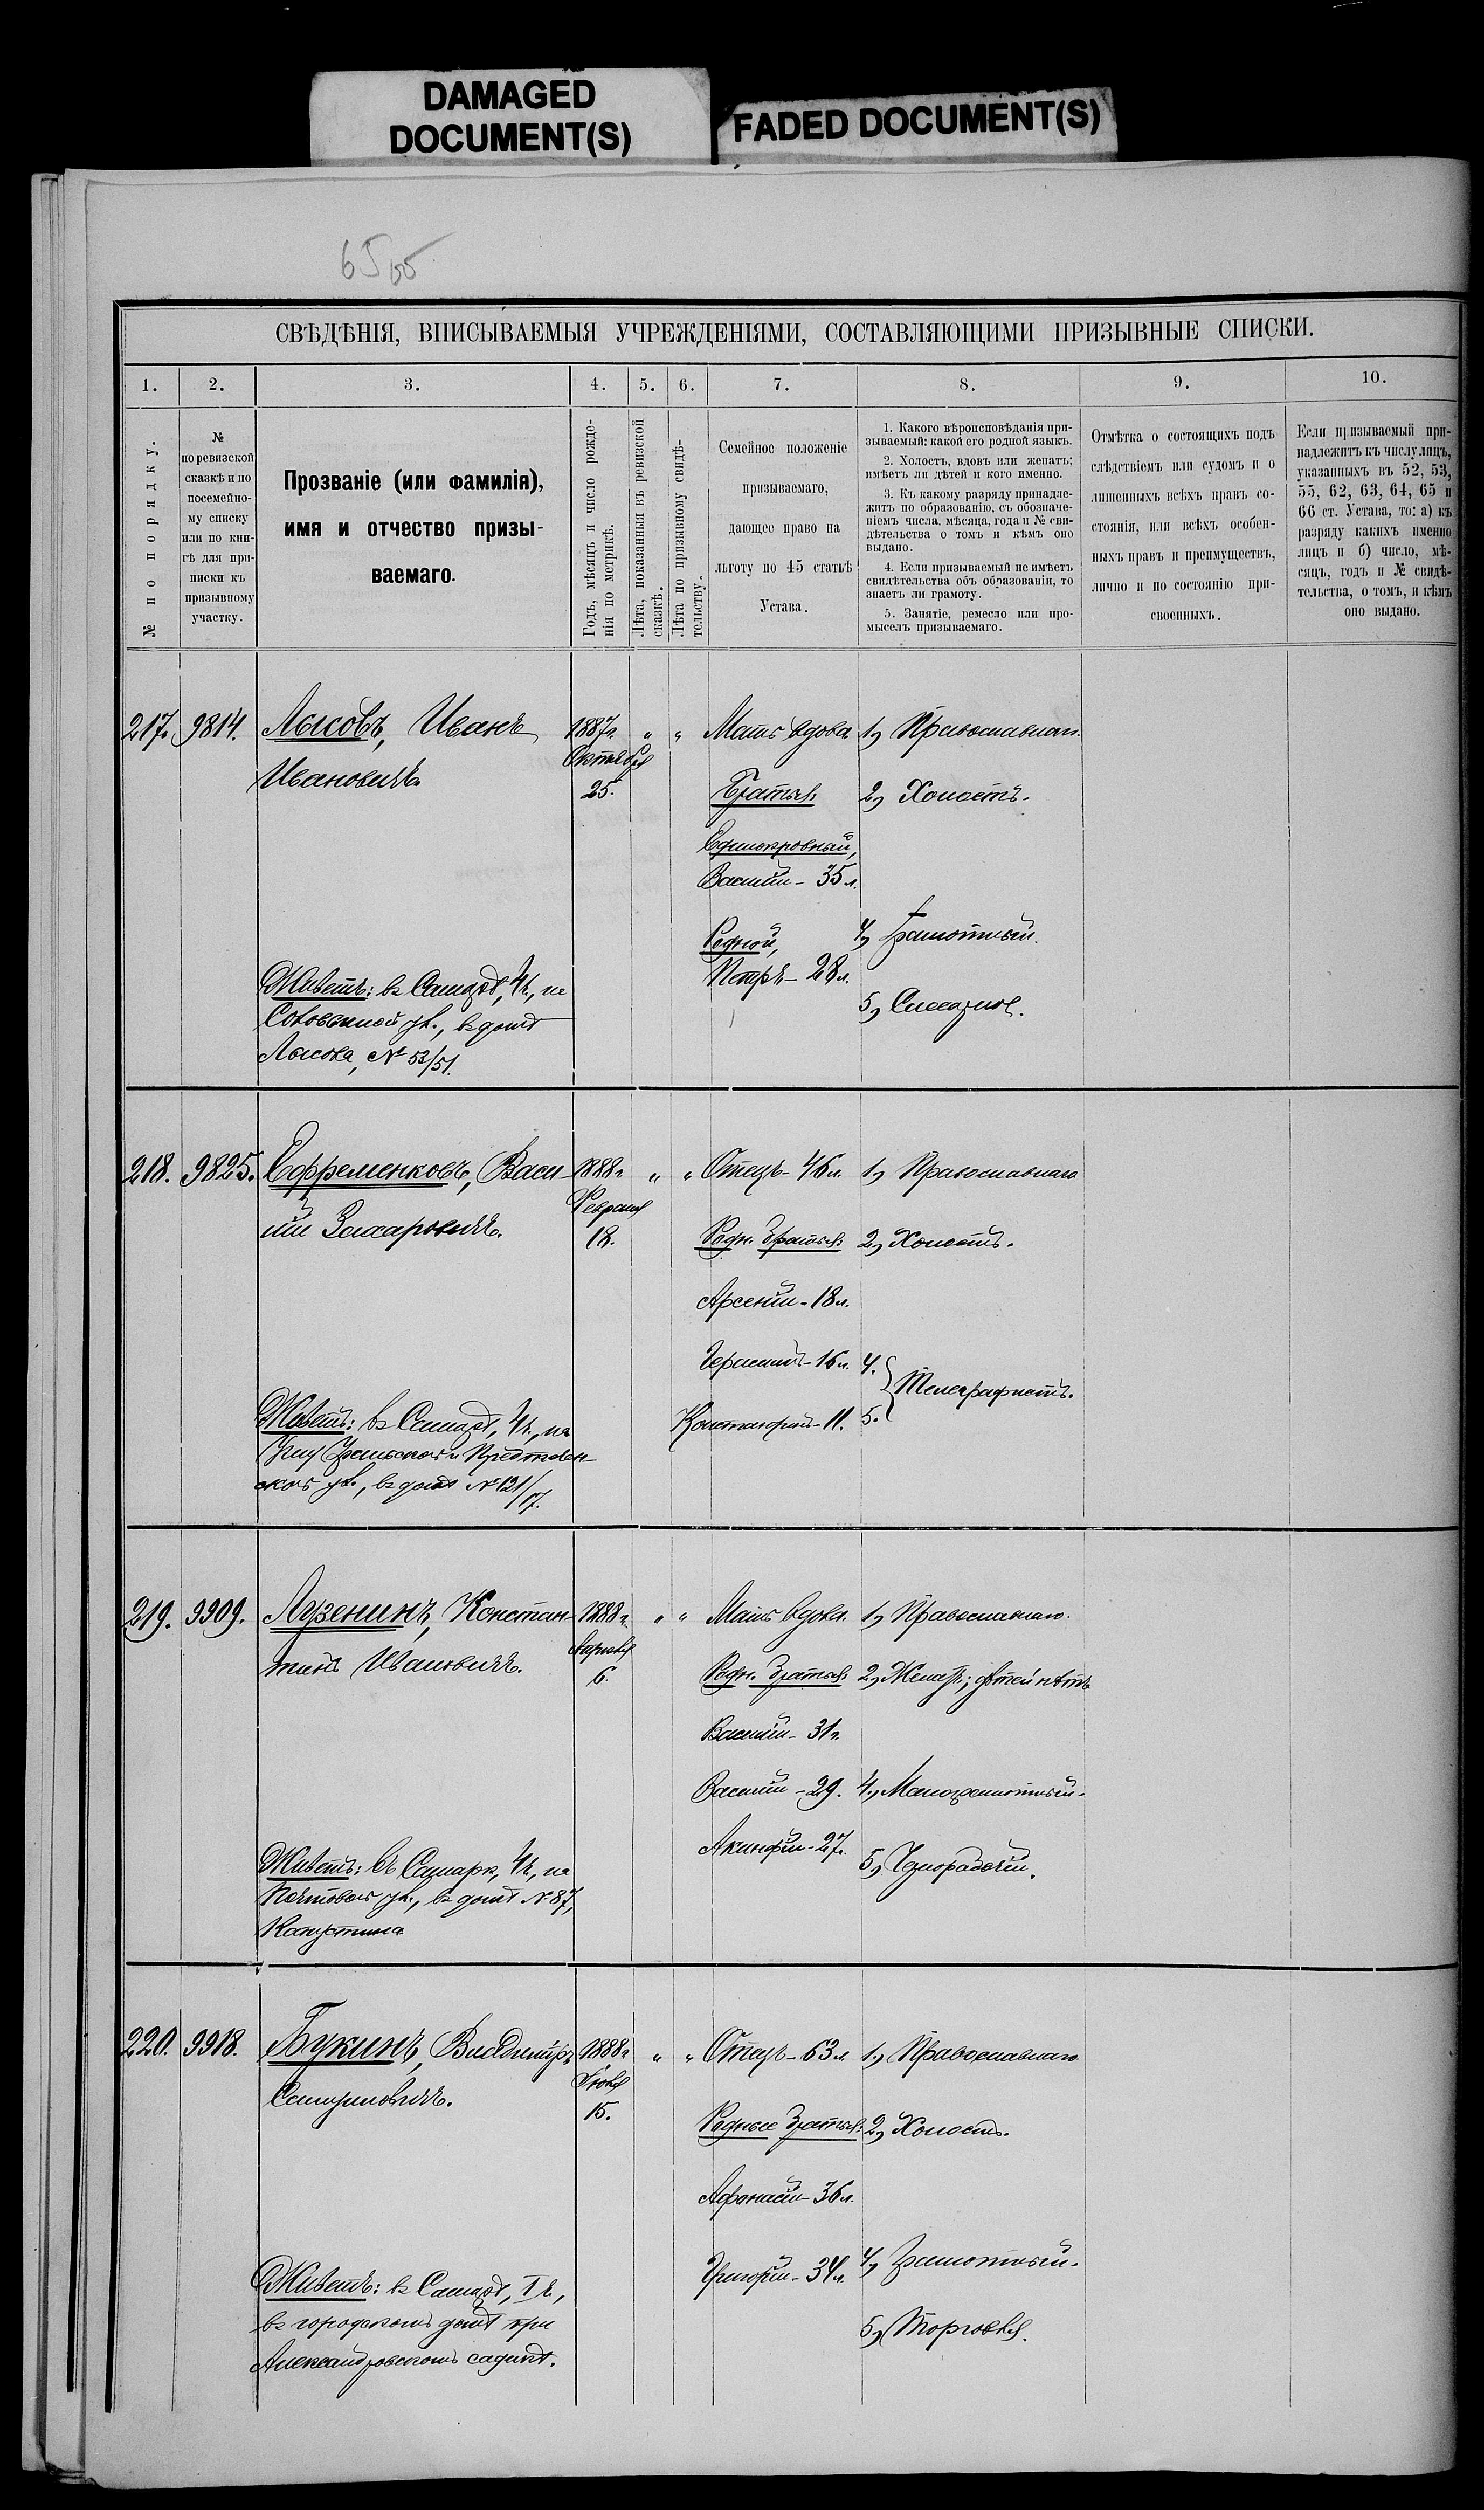 DAMAGED
DOCUMENT(S)
FADED DOCUMENT(S)
65
СВѢДѢНІЯ, ВПИСЫВАЕМЫЯ УЧРЕЖДЕНІЯМИ, СОСТАВЛЯЮЩИМИ ПРИЗЫВНЫЕ СПИСКИ.
1. 2. 3. 4. 5. 6. 7. 8. 9. 10.
№ по порядку.
№
по ревизской
сказкѣ и по
посемейно-
му списку
или по кни-
гѣ для при-
писки къ
призывному
участку.
Прозваніе (или фамилія),
имя и отчество призы-
ваемаго.
Годъ, мѣсяцъ и число рожде-
нія по метрикѣ.
Лѣта, показанныя въ ревизской
сказкѣ.
Лѣта по призывному свидѣ-
тельству.
Семейное положеніе
призываемаго,
дающее право на
льготу по 45 статьѣ
Устава.
1. Какого вѣроисповѣданія при-
зываемый: какой его родной языкъ.
2. Холостъ, вдовъ или женатъ;
имѣетъ ли дѣтей и кого именно.
3. Къ какому разряду принадле-
житъ по образованію, съ обозначе-
ніемъ числа, мѣсяца, года и № сви-
дѣтельства о томъ и кѣмъ оно
выдано.
4. Если призываемый не имѣетъ
свидѣтельства объ образованіи, то
знаетъ ли грамоту.
5. Занятіе, ремесло или про-
мыселъ призываемаго.
Отмѣтка о состоящихъ подъ
слѣдствіемъ или судомъ и о
лишенныхъ всѣхъ правъ со-
стоянія, или всѣхъ особен-
ныхъ правъ и преимуществъ,
лично и по состоянію при-
своенныхъ.
Если призываемый при-
надлежитъ къ числу лицъ,
указанныхъ въ 52, 53,
55, 62, 63, 64, 65 и
66 ст. Устава, то: а) къ
разряду какихъ именно
лицъ и б) число, мѣ-
сяцъ, годъ и № свидѣ-
тельства, о томъ, и кѣмъ
оно выдано.
217. 9814. Лысовъ, Иванъ
Ивановичъ.
Живетъ: въ Самарѣ, 4ч., на
Соловьиной ул., въ домѣ
Лысова, № 53/51.
1887г.
Октября
25.
" "
Мать вдова
Братья
Единокровный,
Василій - 35 л.
Родной,
Петръ - 28 л.
1) Православнаго.
2) Холостъ.
4) Грамотный.
5) Слесарное.
218. 9825. Ефременковъ, Васи-
лій Захаровичъ.
Живетъ: въ Самарѣ, 4ч., на
углу Уральской и Предтечен-
ской ул., въ домѣ № 121/17.
1888г.
Февраля
18.
" "
Отецъ - 46 л.
Родн. братья:
Арсеній - 18 л.
Герасимъ - 16 л.
Константинъ - 11.
1) Православнаго
2) Холостъ.
4.
5. Телеграфистъ.
219. 9909. Лузенинъ, Констан-
тинъ Ивановичъ.
Живетъ: въ Самарѣ, 4ч., на
Почтовой ул., въ домѣ № 87,
Капустина
1888г.
Апрѣля
6.
" "
Мать вдова.
Родн. братья:
Василій - 31 г.
Василій - 29.
Акинфій - 27.
1) Православнаго.
2) Женатъ; дѣтей нѣтъ
4) Малограмотный.
5) Чернорабочій.
220. 9918. Букинъ, Владиміръ
Самуиловичъ.
Живетъ: въ Самарѣ, I ч.,
въ городскомъ домѣ при
Александровскомъ садикѣ.
1888г.
Іюля
15.
" "
Отецъ - 63 л.
Родные братья:
Афонасій - 36 л.
Григорій - 34 л.
1) Православнаго
2) Холостъ.
4) Грамотный.
5) Торговля.